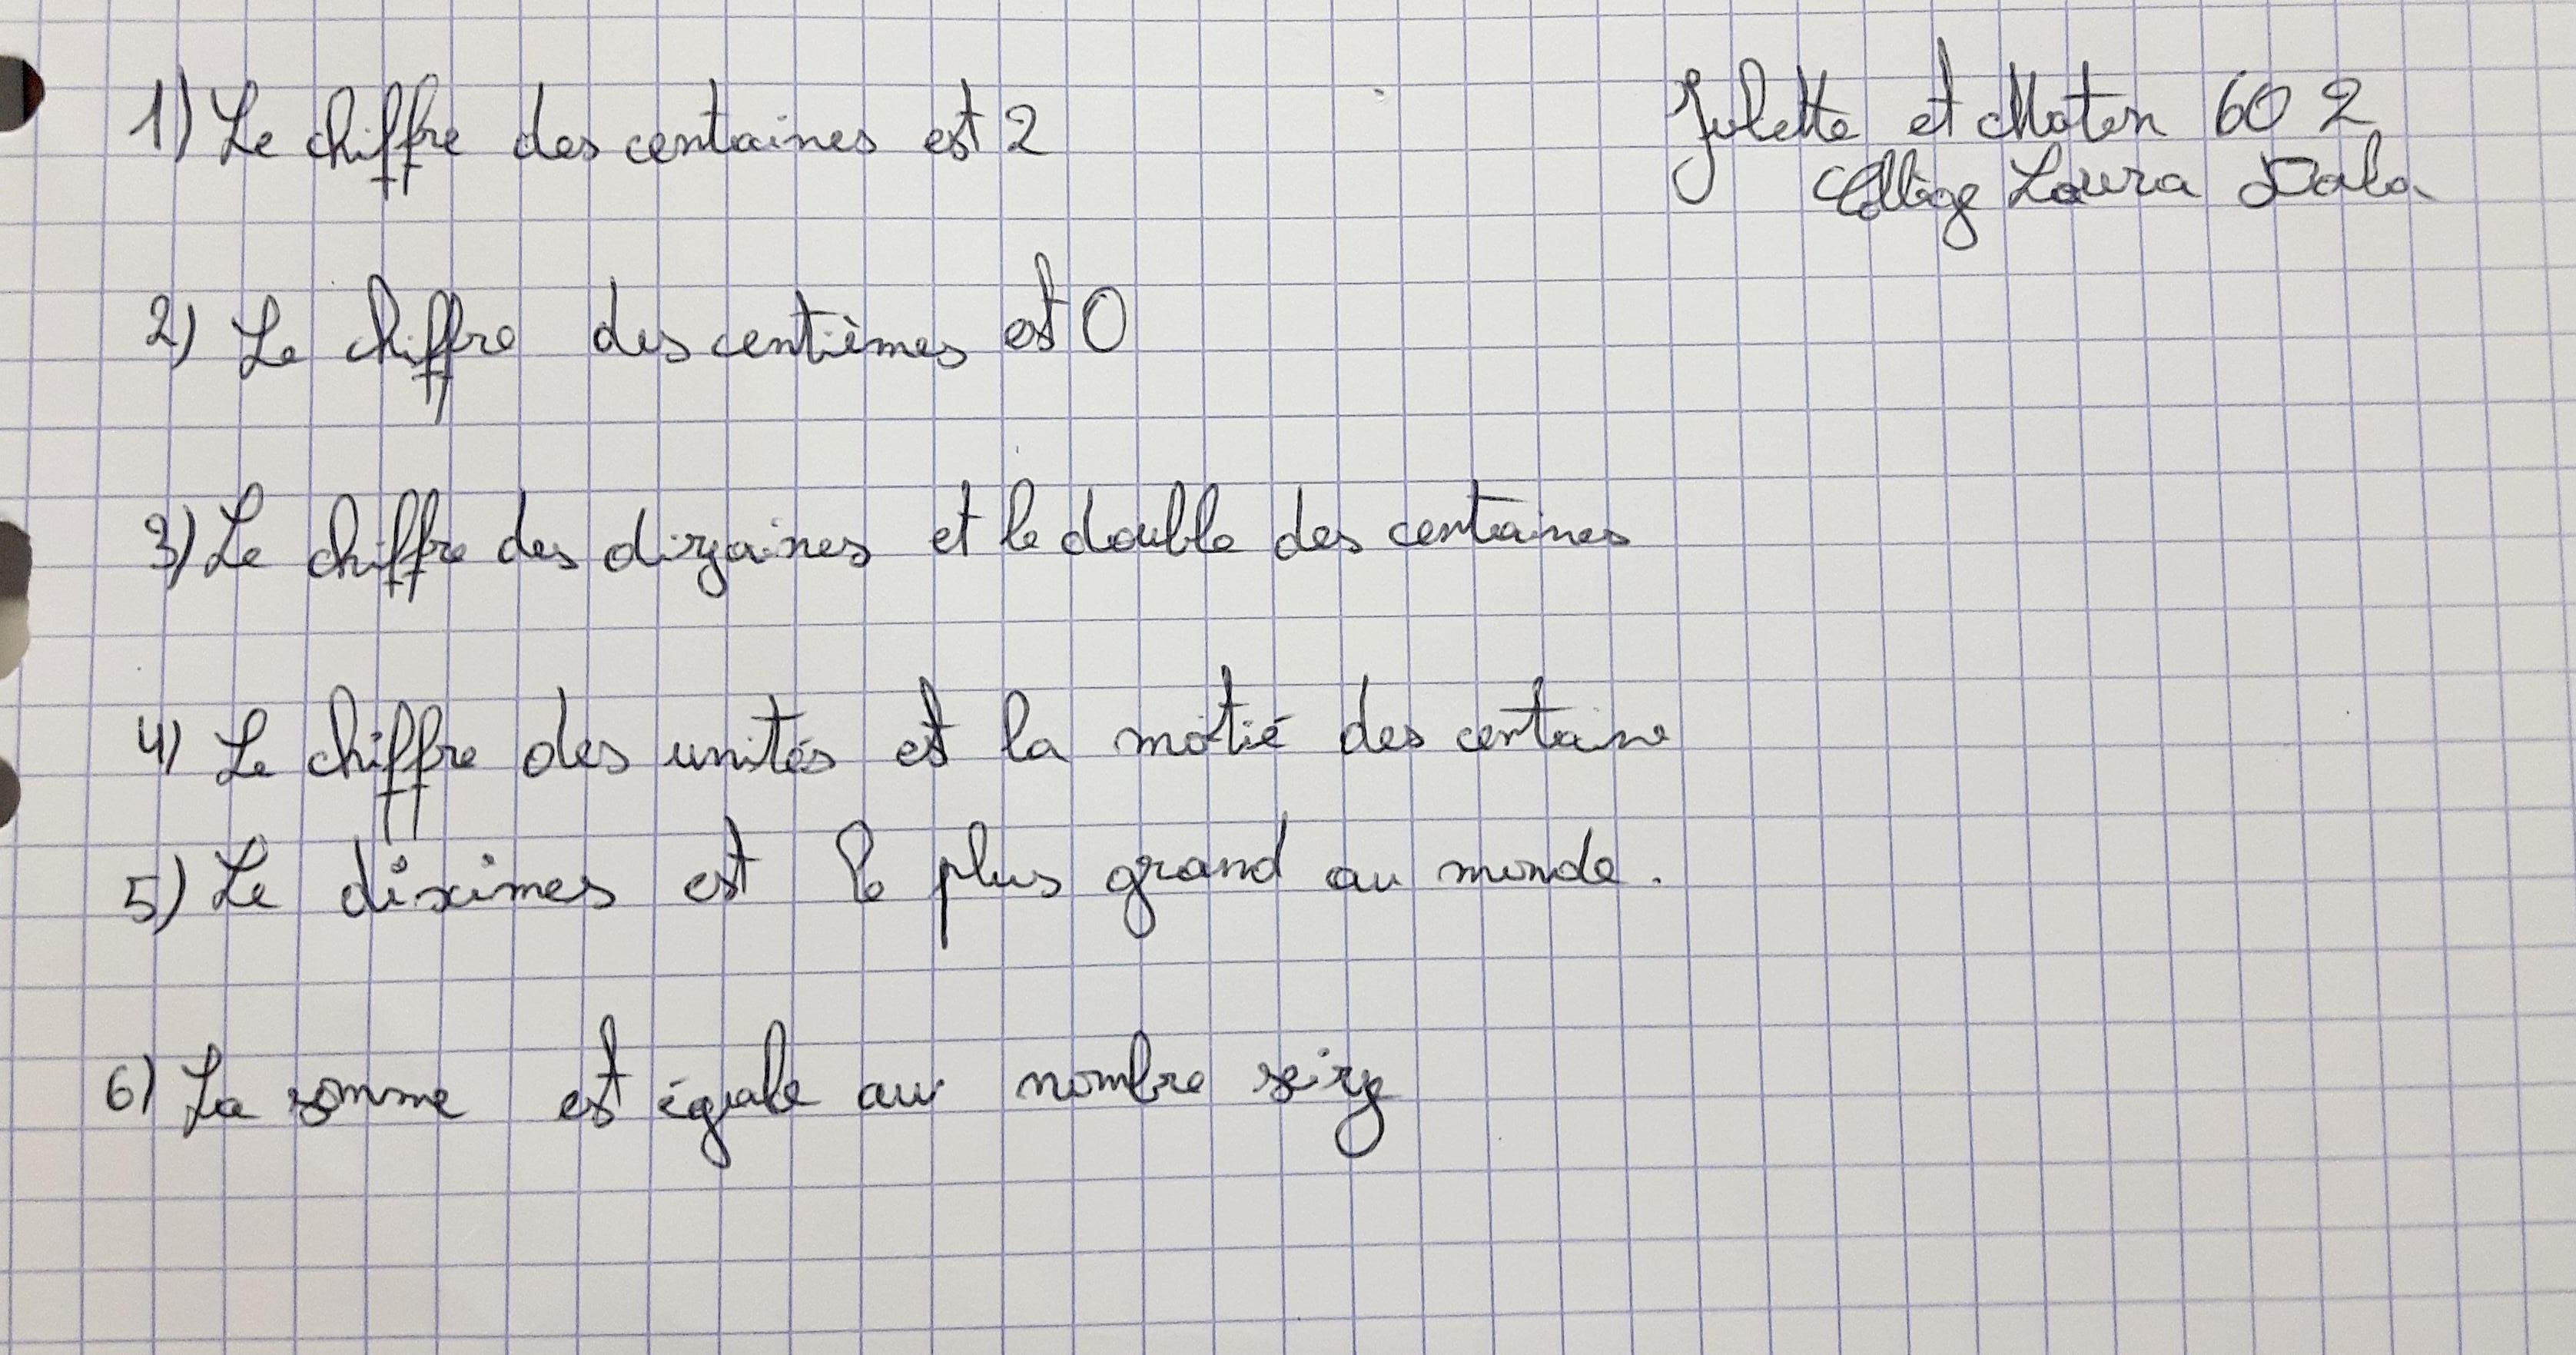 1) Le chiffre des centaines est 2
Juliette et Maten 60 2
Collège Laura Dala
2) Le chiffre des centièmes est 0
3) Le chiffre des dizaines et le double des centaines
4) Le chiffre des unités est la motié des centaine
5) Le diximes est le plus grand au monde.
6) La somme est égale au nombre seize